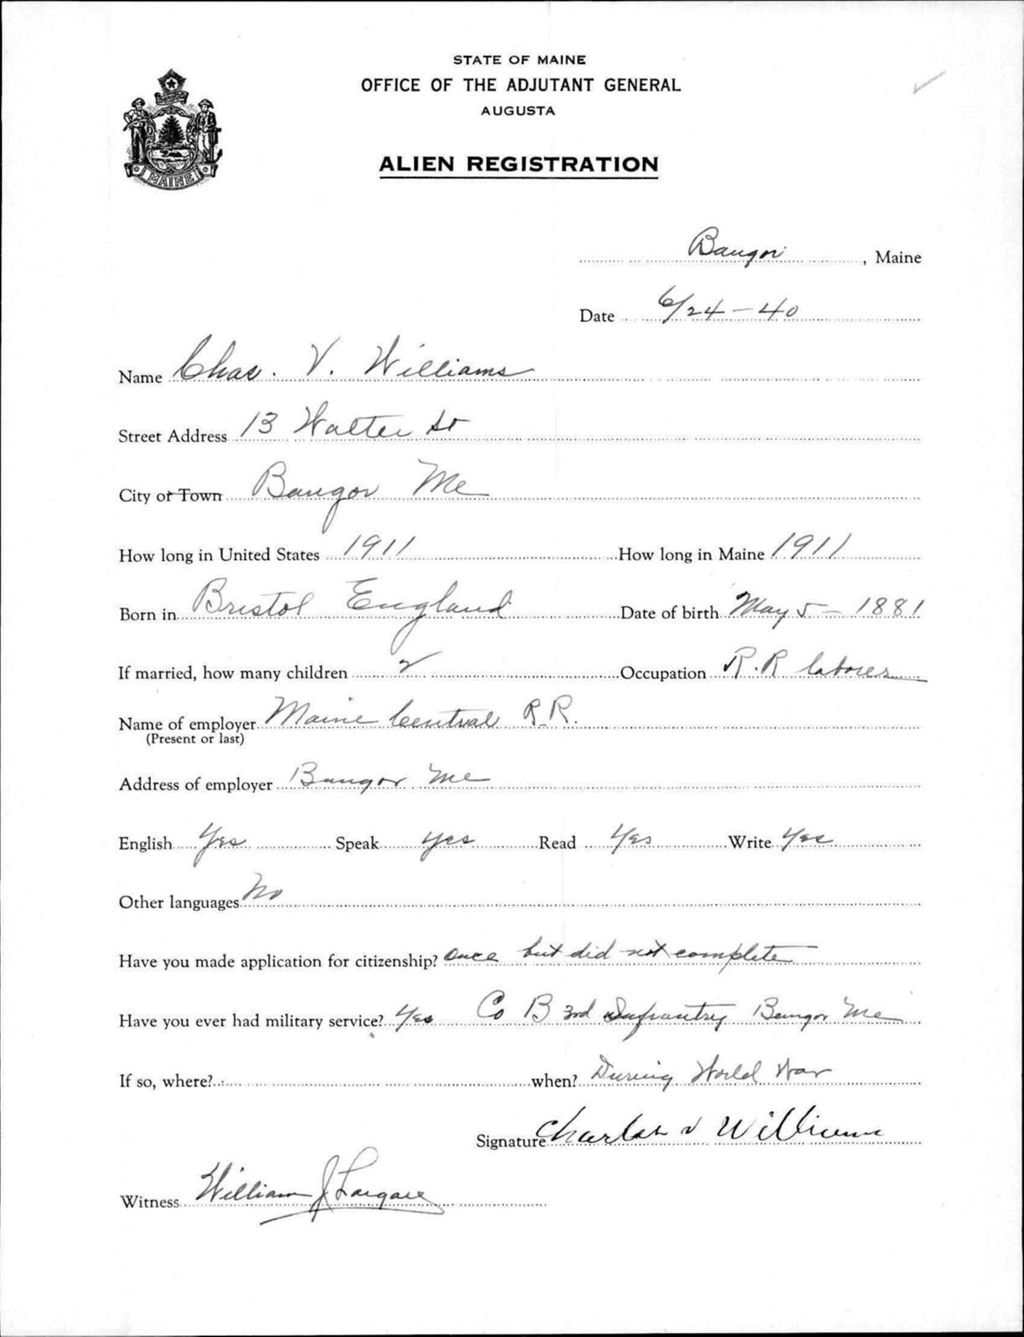 STATE OF MAINE
OFFICE OF THE ADJUTANT GENERAL
AUGUSTA
ALIEN REGISTRATION
MAINE
Bangor, Maine
Date 6/24-40
Name Chas. V. Williams
Street Address 13 Walter St
City or Town Bangor Me
How long in United States 1911 How long in Maine 1911
Born in Bristol England Date of birth May 5 - 1881
If married, how many children 2 Occupation R.R laborer
Name of employer Maine Central R.R.
(Present or last)
Address of employer Bangor Me
English Yes Speak yes Read Yes Write Yes
Other languages No
Have you made application for citizenship? Once but did not complete
Have you ever had military service? Yes Co B 3rd Infantry Bangor Me
If so, where? when? During World War
Signature Charles V Williams
Witness William J